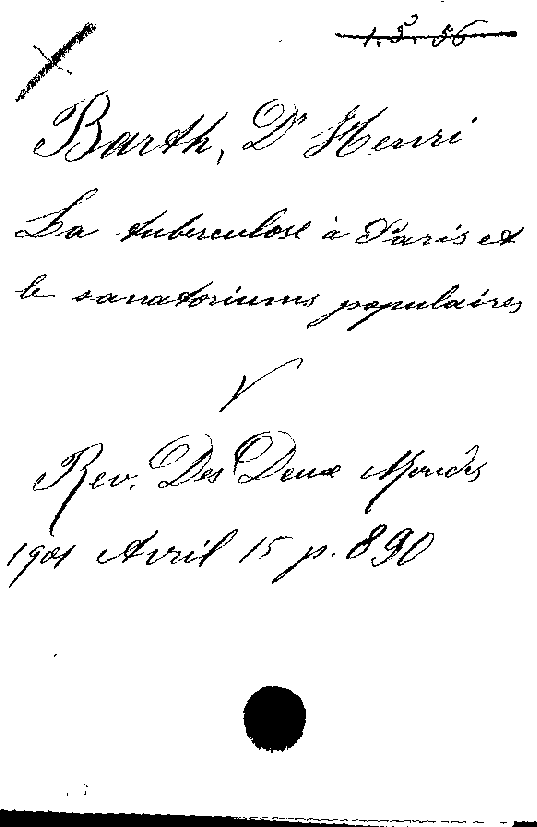 1.5.56
Barth, Dr Henri
La tuberculose à Paris et
le sanatoriums populaires
Rev. Des Deux Mondes
1901 Avril 15 p. 890